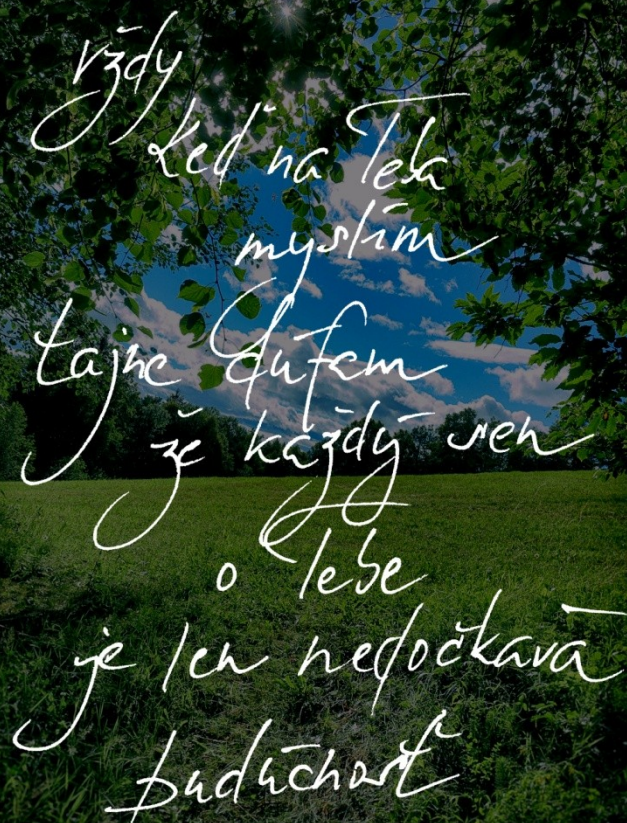 vždy
keď na Teba
myslím
tajne dúfam
že každý sen
o Tebe
je len nedočkavá
budúcnosť